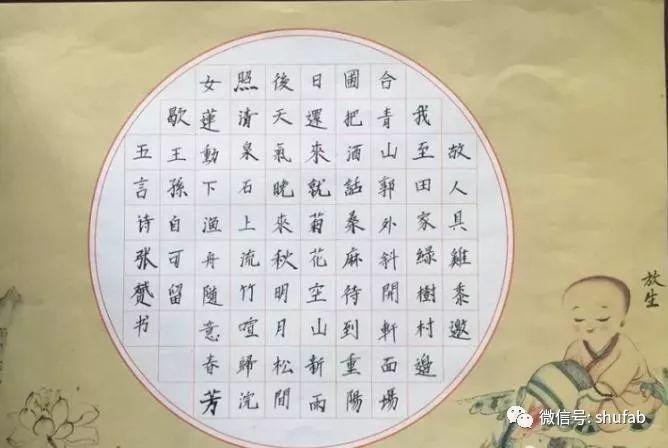 故人具雞黍邀
我至田家綠樹村邊
合青山郭外斜開軒面場
圃把酒話桑麻待到重陽
日還來就菊花空山新雨
後天氣晚來秋明月松間
照清泉石上流竹喧歸浣
女蓮動下漁舟隨意春芳
歇王孫自可留
五言诗张书
放生
微信号: shufab